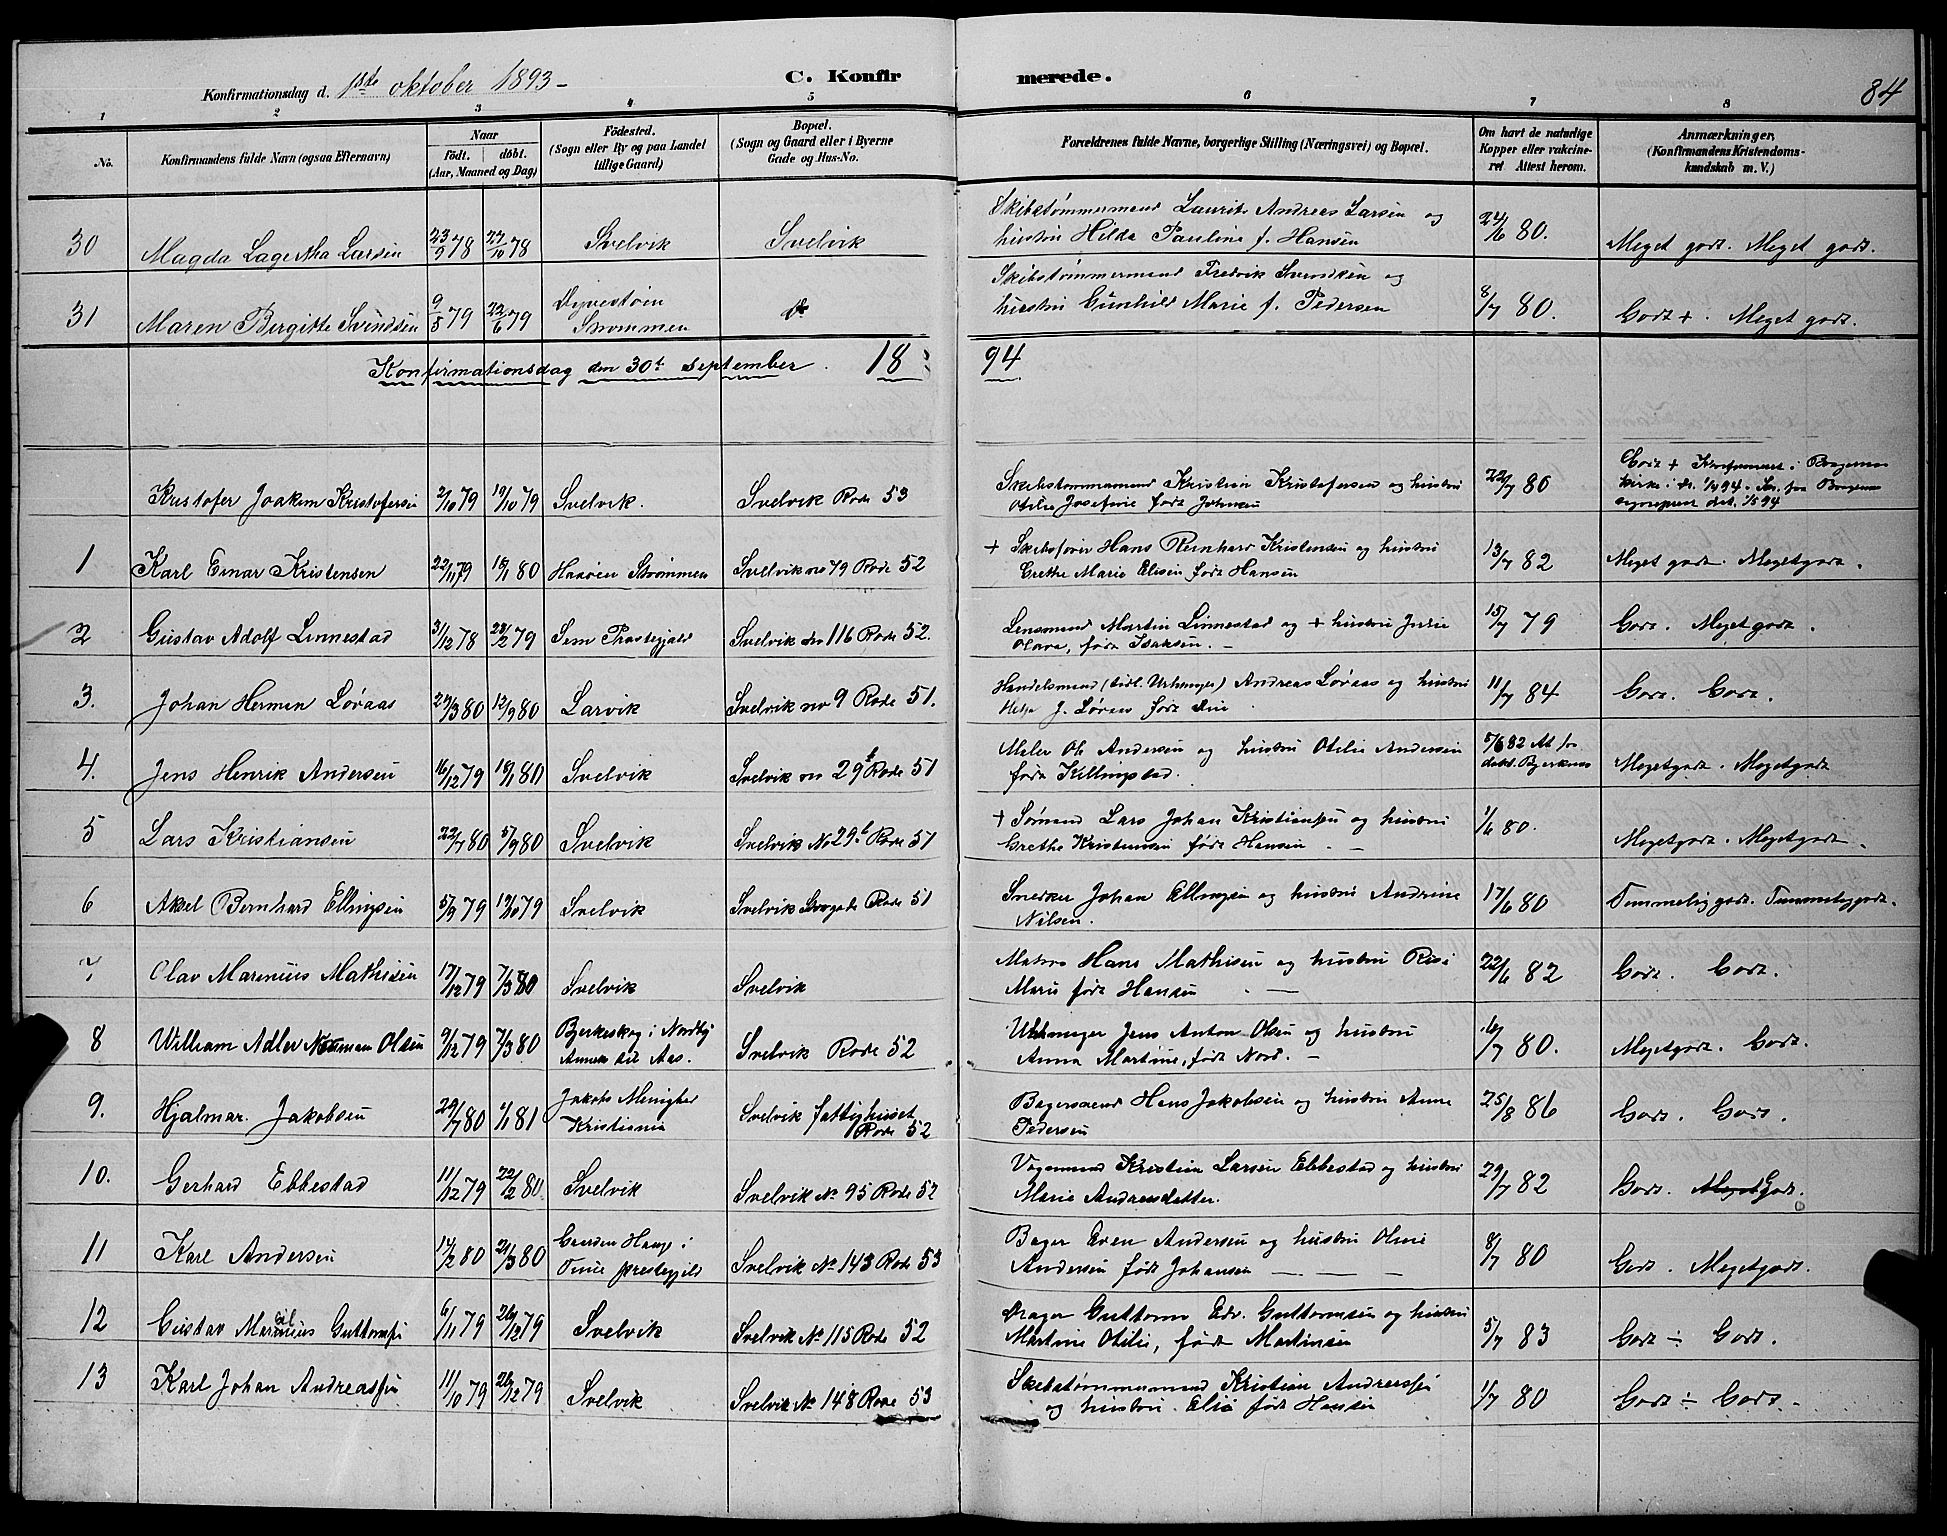 Konfirmationsdag d. 1ste oktober 1893 –
C. Konfir merede.
84
1 2 3 4 5 6 7 8
No.
Konfirmandens fulde Navn (ogsaa Efternavn)
Naar
födt. döbt.
(Aar, Maaned og Dag)
Födested.
(Sogn eller By og paa Landet
tillige Gaard)
Bopæl.
(Sogn og Gaard eller i Byerne
Gade og Hus-No.
Forældrenes fulde Navne, borgerlige Stilling (Næringsvei) og Bopæl.
Om havt de naturlige
Kopper eller vakcine-
ret Attest herom.
Anmærkninger,
(Konfirmandens Kristendoms-
kundskab m. V.)
30 Magda Lagertha Larsen 23/9 78 27/10 78 Svelvik Svelvik
Skibstømmermand Laurits Andreas Larsen og
hustru Hilda Pauline f. Hansen
24/6 80. Meget godt. Meget godt.
31 Maren Bergitte Svendsen 9/5 79 22/6 79
Strømmen
Skibstømmermand Fredrik Svendsen og
hustru Gunhild Marie f. Pedersen
8/7 80. Godt +. Meget godt.
Konfirmationsdag den 30t September. 18 94
Kristofer Joakim Kristofersen 2/10 79 19/10 79 Svelvik. Svelvik Rode 53
Skibstømmermand Kristian Kristofersen og hustru
Otilie Josefine født Johnsen
22/7 80
Godt + Konfirmeret i Bragernes
kirke
1 Karl Einar Kristensen 22/11 79 18/1 80 Haaøen Strømmen Svelvik no 79 Rode 52
+ Skibsfører Hans Reinhard Kristensen og hustru
Grethe Marie Elisen født Hansen
13/7 82 Meget godt. Megetgodt.
2 Gustav Adolf Linnestad 31/12 78 23/2 79 Sem Præstegjæld Svelvik no 116 Rode 52.
Lensmand Martin Linnestad og + hustru Julie
Olava, født Isaksen. –
15/7 79 Godt. Megetgodt.
3. Johan Hermen Løvaas 27/3 80 12/9 80 Larvik Svelvik no 9 Rode 51.
Handelsmand (tidl. Urtmager) Andreas Løvaas og hustru
J. Løvaas født
11/7 84 Godt. Godt.
4. Jens Henrik Andersen 16/12 79 18/1 80 Svelvik Svelvik no 29b Rode 51
Maler Ole Andersen og hustru Otilie Andersen
født Killingstad.
5/6 82 At fr.
Megetgodt. Megetgodt
5 Lars Kristiansen 22/7 80 5/9 80 Svelvik Svelvik No 29b Rode 51
+ Sømand Lars Johan Kristiansen og hustru
Grethe Kristensen født Hansen. –
1/6 80. Megetgodt. Megetgodt.
6 Aksel Bernhard Ellingsen 5/9 79 19/10 79 Svelvik Svelvik Rode 51
Snedker Johan Ellingsen og hustru Andrine
Nilsen.
17/6 80 Temmeliggodt. Temmeliggodt.
7 Olav Marinius Mathisen 17/12 79 7/3 80 Svelvik Svelvik
Matros Hans Mathisen og hustru
Marie født Hansen –
22/6 82 Godt. Godt.
8 William Adler Norman Olsen 9/12 79 7/3 80
Bjerkeskog i Nordby
Annex til Aas.
Svelvik Rode 52
Urmager Jens Anton Olsen og hustru
Anna Martine, født Nord. –
16/7 80. Megetgodt. Godt.
9. Hjalmar. Jakobsen 29/7 80 1/1 81
Jakobs Menighed
Kristiania
Svelvik fattighuset
Rode 52
Bagersvend Hans Jakobsen og hustru Anne
Pedersen
25/8 86 Godt. Godt.
10. Gerhard Ebbestad 11/12 79 22/2 80. Svelvik Svelvik No 95 Rode 52
Vognmand Kristian Larsen Ebbestad og hustru
Marie Andreasdatter.
29/7 82 Godt. Meget Godt.
11 Karl Andersen 17/2 80 21/3 80
Gaarden Haug i
Tune prestegjeld
Svelvik No 143 Rode 53
Bager Even Andersen og hustru Oline
Andersen født Johansen – – –
8/7 80 Godt. Megetgodt.
12 Gustav Marinius Guttormsen 6/11 79 26/12 79 Svelvik Svelvik No 115 Rode 52
Drager Guttorm Edv. Guttormsen og hustru
Martine Otilie, født Martinsen
5/7 83 Godt ÷ Godt.
13 Karl Johan Andreassen 11/10 79 26/12 79 Svelvik Svelvik No 148 Rode 53
Skibstømmermand Kristian Andreassen
og hustru Elise født Hansen
1/7 80 Godt ÷ Godt.